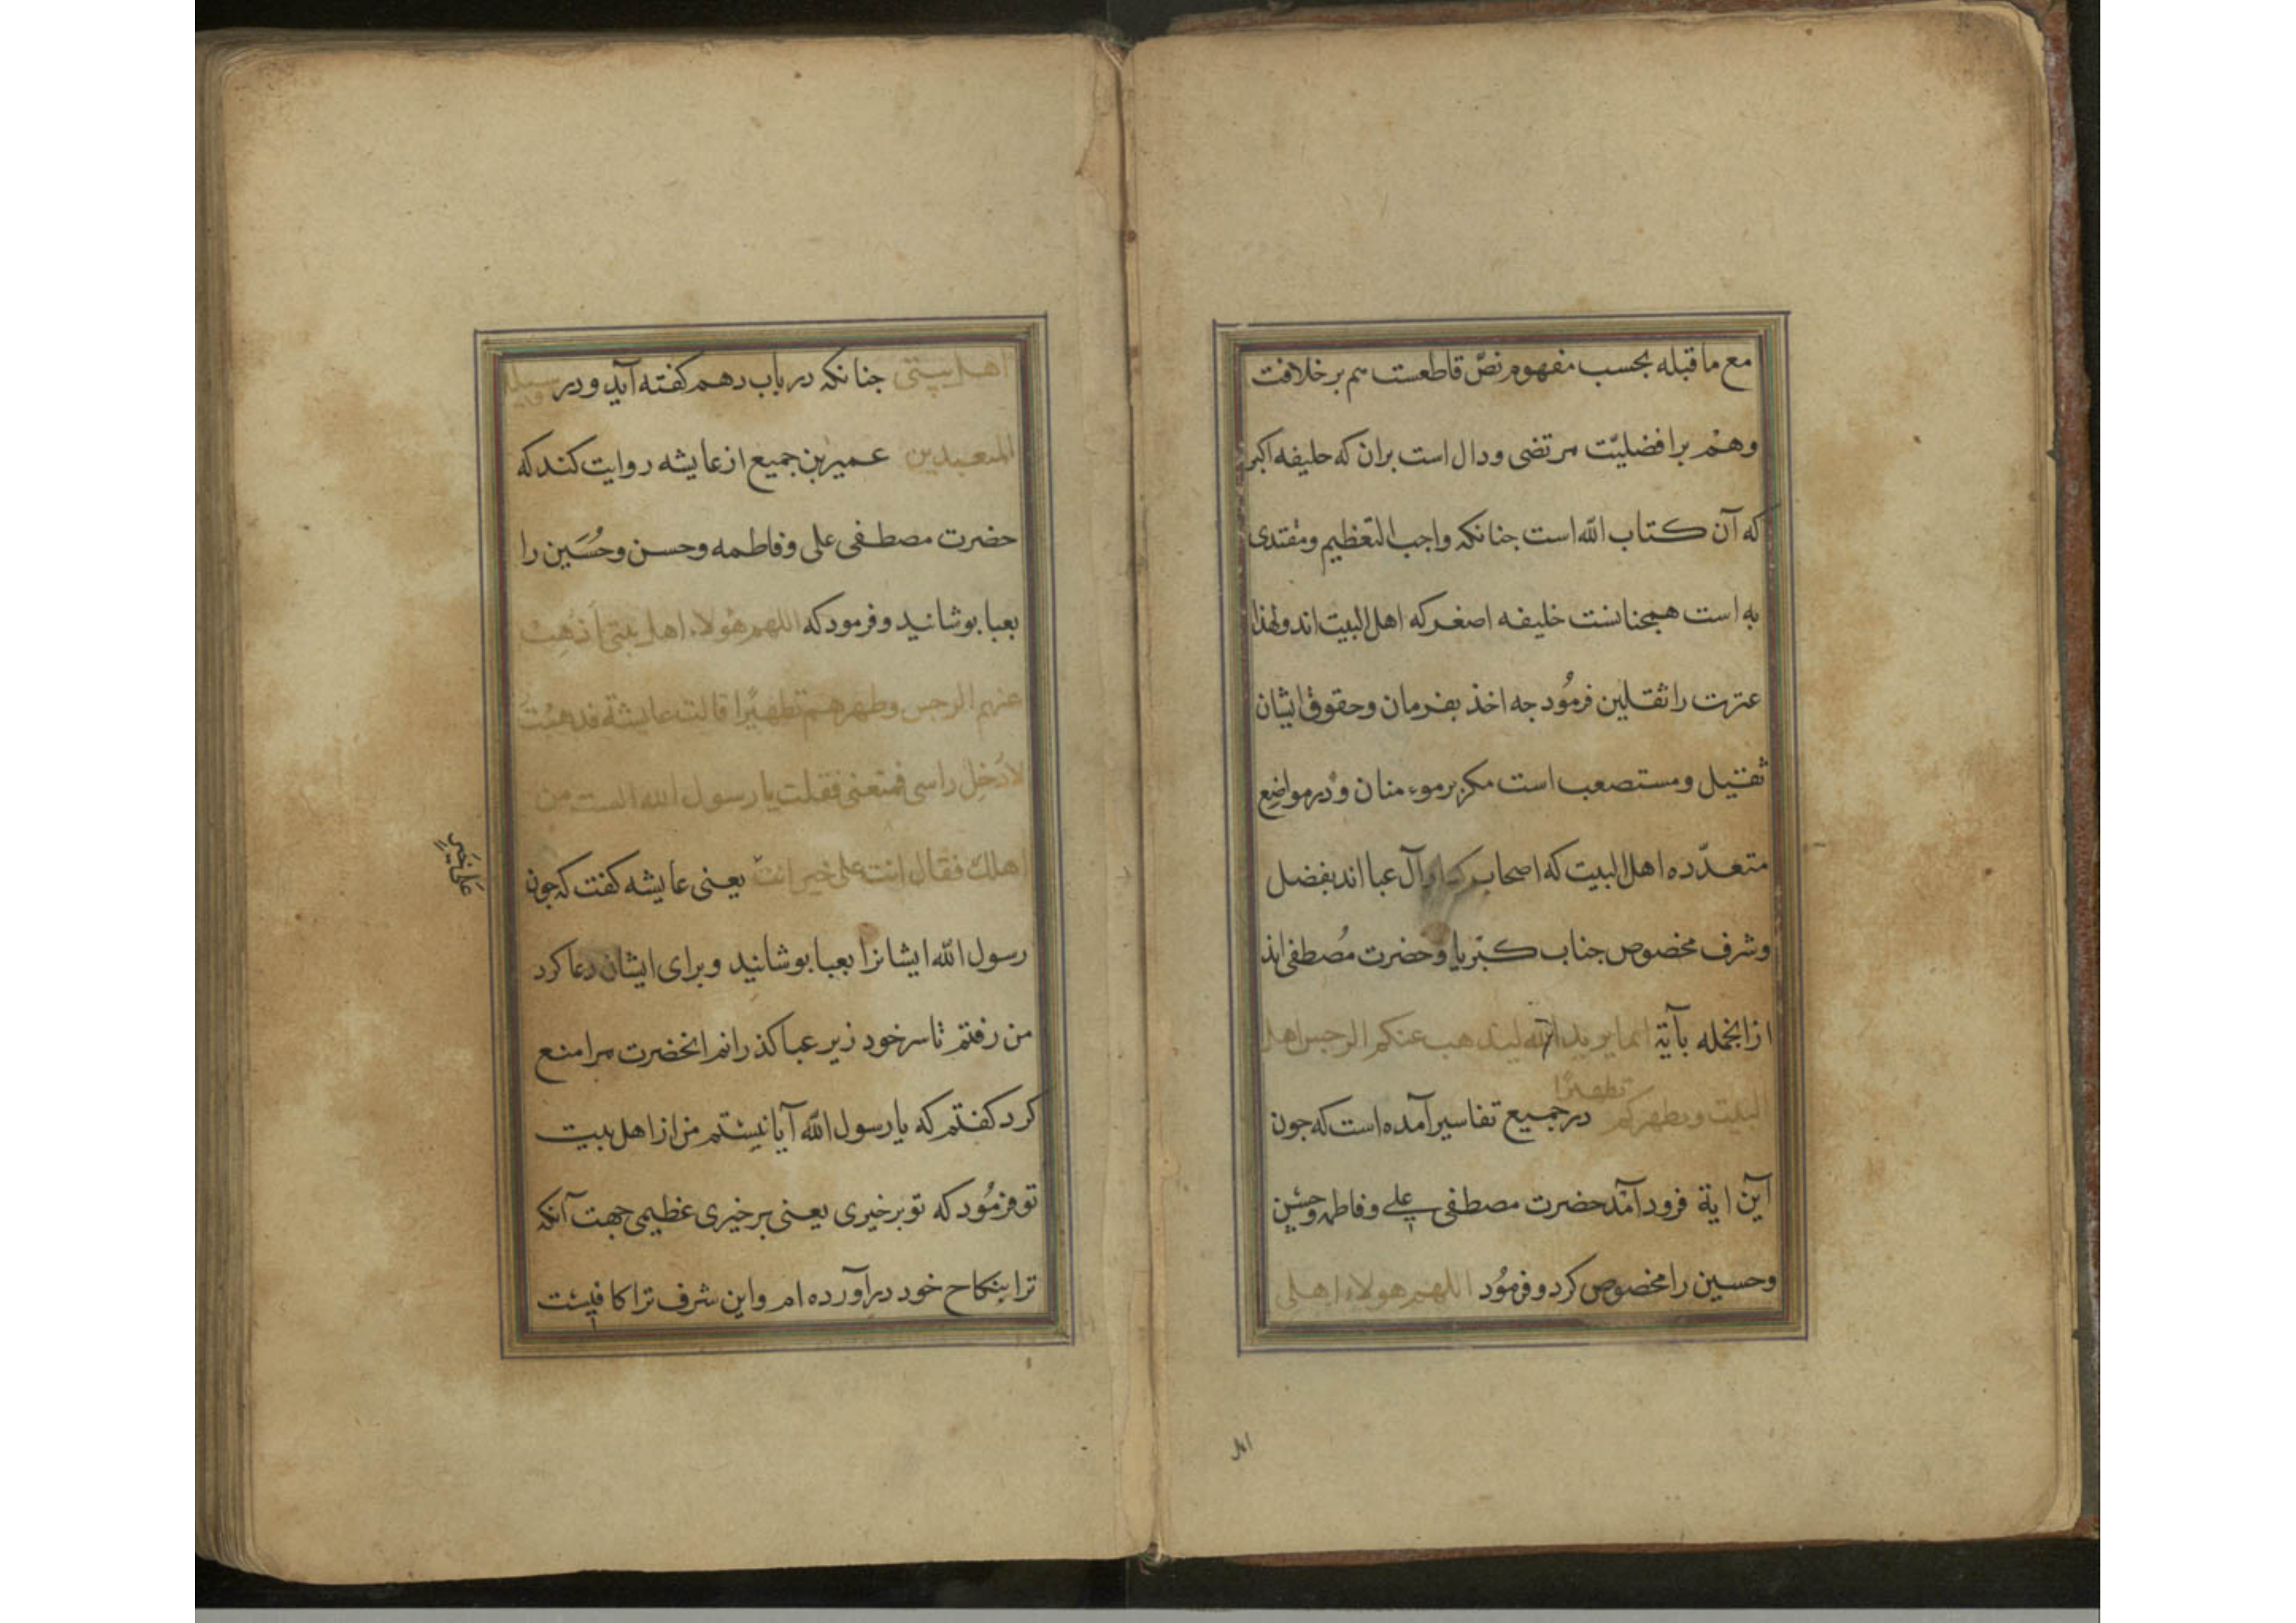 مع ما قبله بحسب مفهوم نصّ قاطعست هم بر خلافت
وهم بر افضليّت مرتضى ودال است بران كه خليفه اكبر
كه آن كتاب الله است جنانكه واجب التعظيم ومقتدى
به است همجنانست خليفه اصغر كه اهل البيت اند ولهذا
عترت را ثقلين فرمُود جه اخذ بفرمان وحقوق ايشان
ثقيل ومستصعب است مكر بر موءمنان ودر مواضع
متعدّده اهل البيت كه اصحاب كسا وآل عبا اند بفضل
وشرف مخصوص جناب كبريا وحضرت مُصطفى اند
ازانجمله بآية انما يريد الله ليذهب عنكم الرجس اهل
البيت ويطهركم تطهيرًا در جميع تفاسير آمده است كه جون
اين اية فرود آمد حضرت مصطفى على وفاطمه وحسن
وحسين را مخصوص كرد وفرمُود اللهم هولاء اهلى
اهل بيتى جنانكه در باب دهم كفته آيد ودر وسيلة
المتعبدين عمير بن جميع از عايشه روايت كند كه
حضرت مصطفى على وفاطمه وحسن وحُسَين را
بعبا بوشانيد وفرمود كه اللهم هولاء اهل بيتى أذهِبْ
عنهم الرجس وطهرهم تطهيرًا قالت عايشة فذهبْتُ
لادُخِل راسى فمنعنى فقلت يا رسول الله الست من
اهلك فقال انت على خير انت يعنى عايشه كفت كه جون
عَلىٰ خَيرٍ
رسول الله ايشانرا بعبا بوشانيد وبراى ايشان دعا كرد
من رفتم تا سر خود زير عبا كذرانم انحضرت مرا منع
كرد كفتم كه يا رسول الله آيا نيستم من از اهل بيت
تو فرمُود كه تو بر خيرى يعنى بر خيرى عظيمى جهت آنكه
ترا بنكاح خود در آورده ام واين شرف ترا كافيست